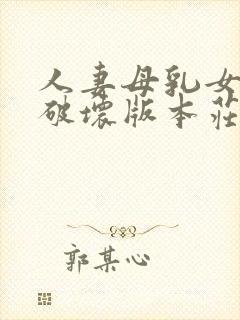 人妻母乳女
破坏版本莊
郭某心